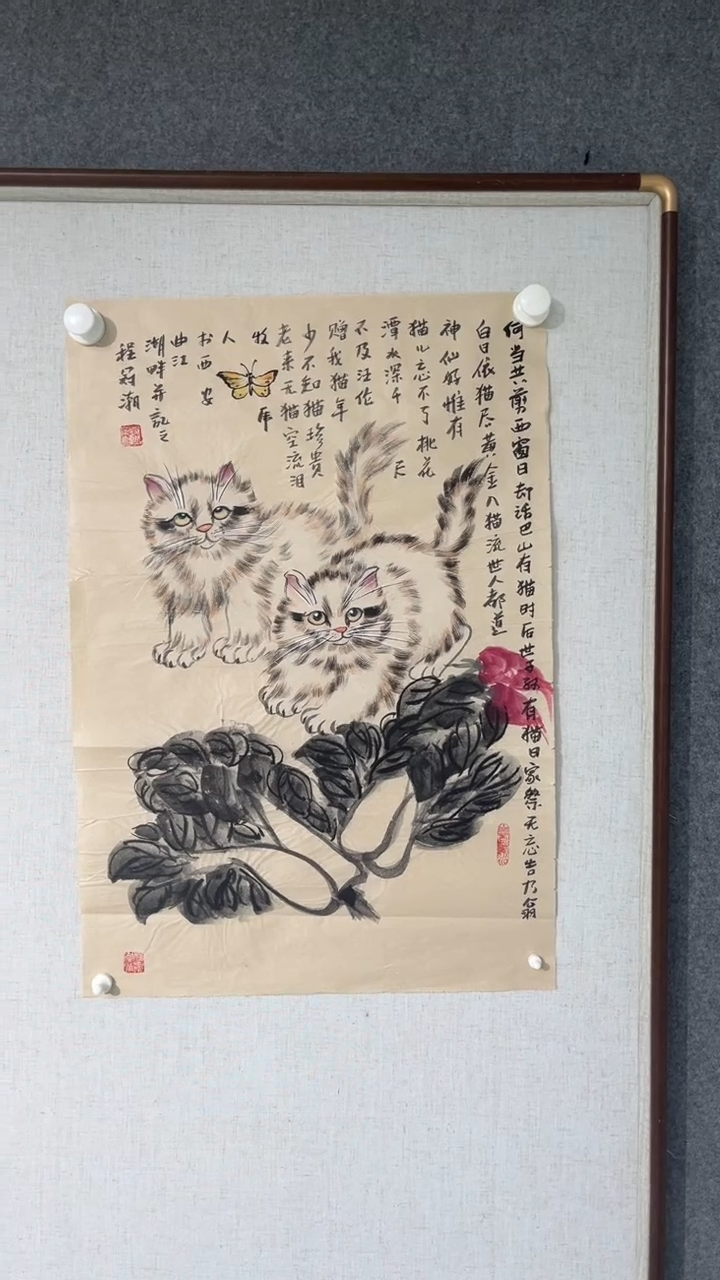 何当共剪西窗日却话巴山有猫时后世子孙有猫日家祭无忘告乃翁
白日依猫尽黄金入猫流世人都道
神仙好惟有
猫儿忘不了桃花
潭水深千尺
不及汪伦
赠我猫年
少不知猫珍贵
老来无猫空流泪
牧虎
人
书西安
曲江
湖畔并記之
程冠潮